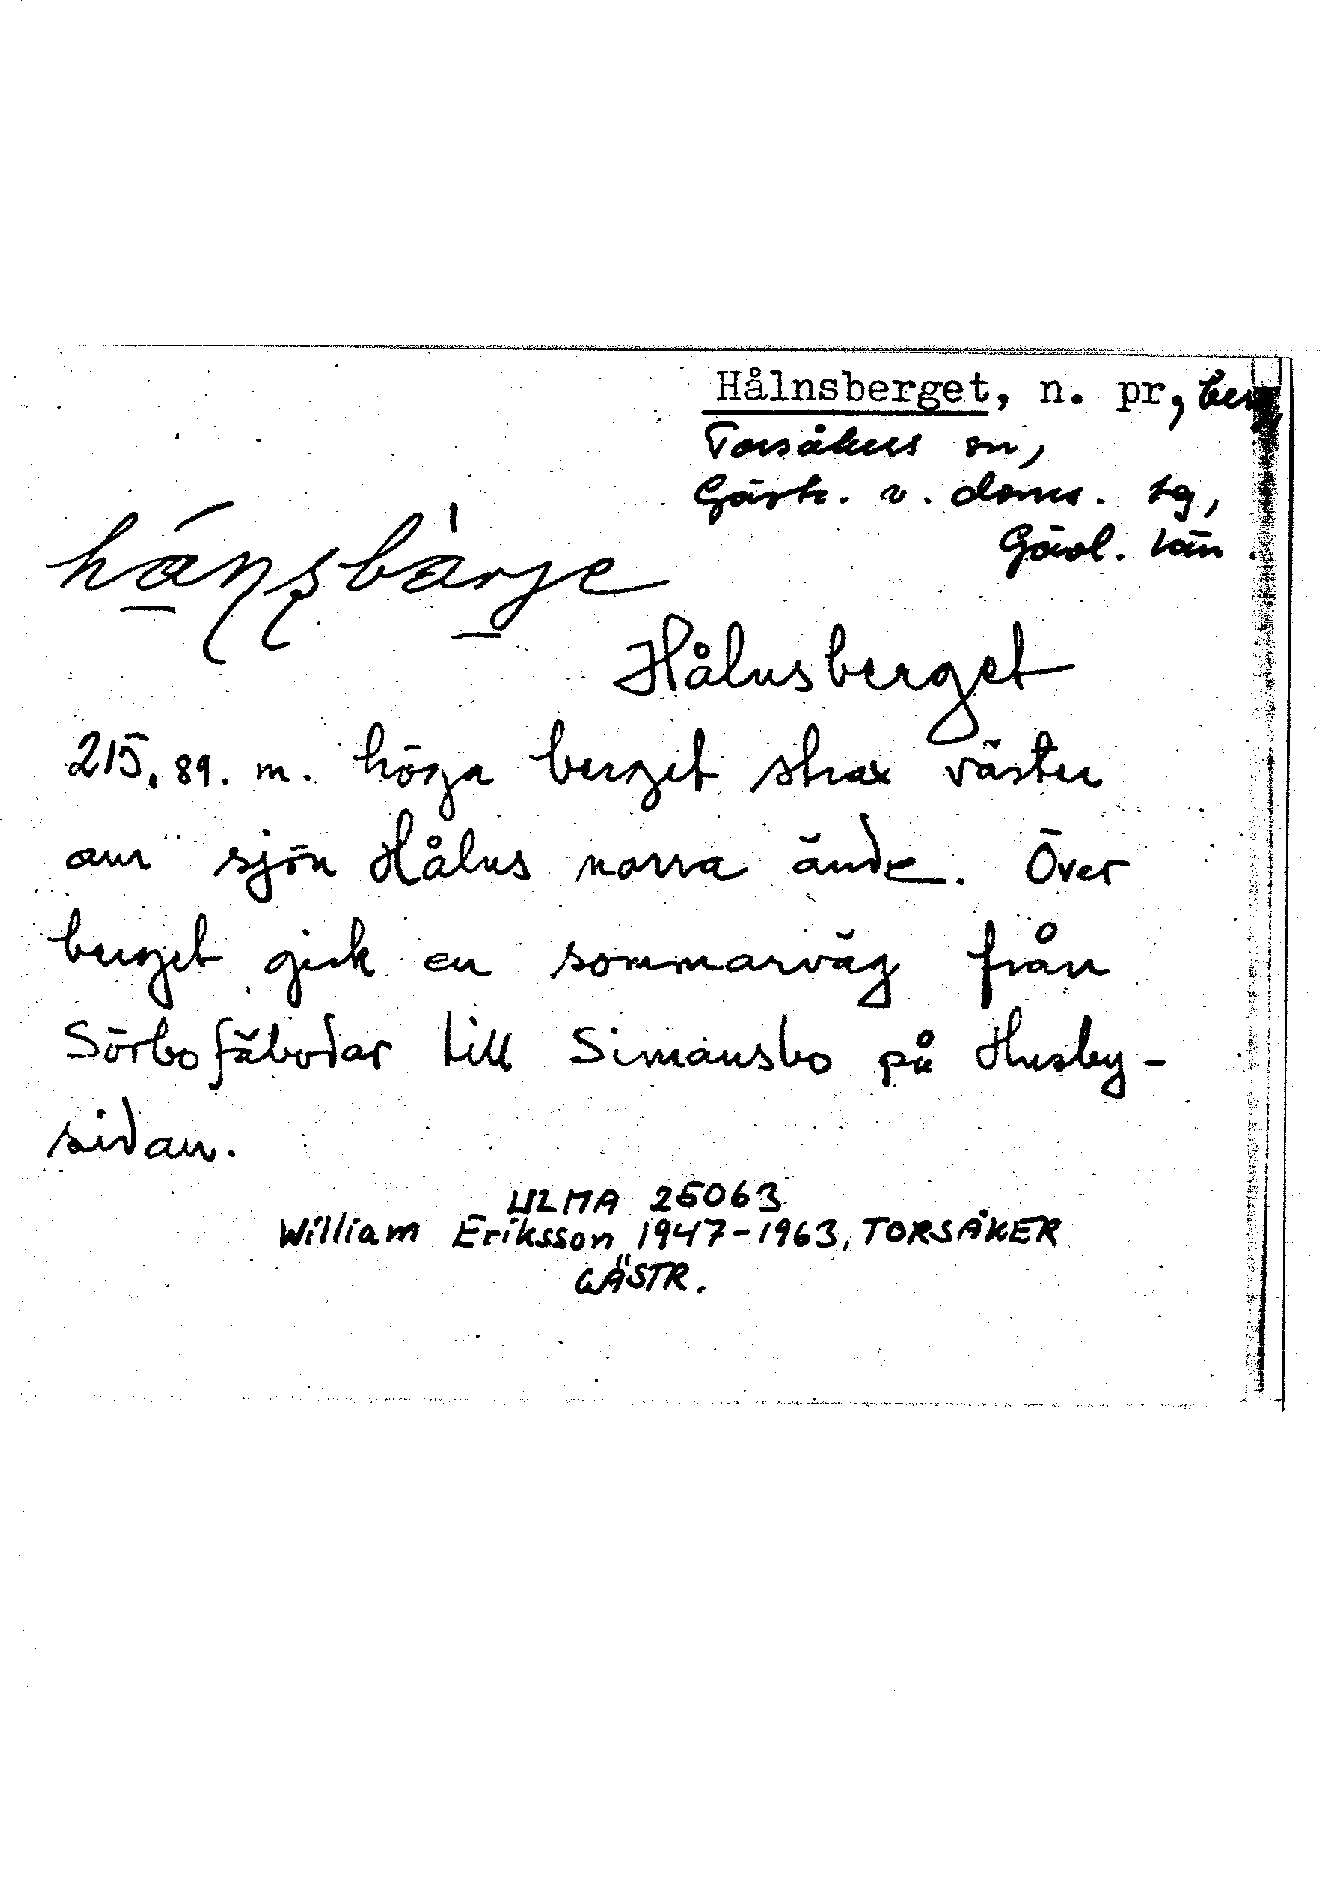 Hålnsberget, n. pr, berg
Torsåkers sn,
Gästr. v. doms. tg,
Gävl. län.
Hålnsberget
215.89. m. höga berget strax väster
om sjön Hålns norra ände. Över
berget gick en sommarväg från
Sörbo fäbodar till Simansbo på Husby-
sidan.
ULMA 25063
William Eriksson 1947-1963, TORSÅKER
GÄSTR.